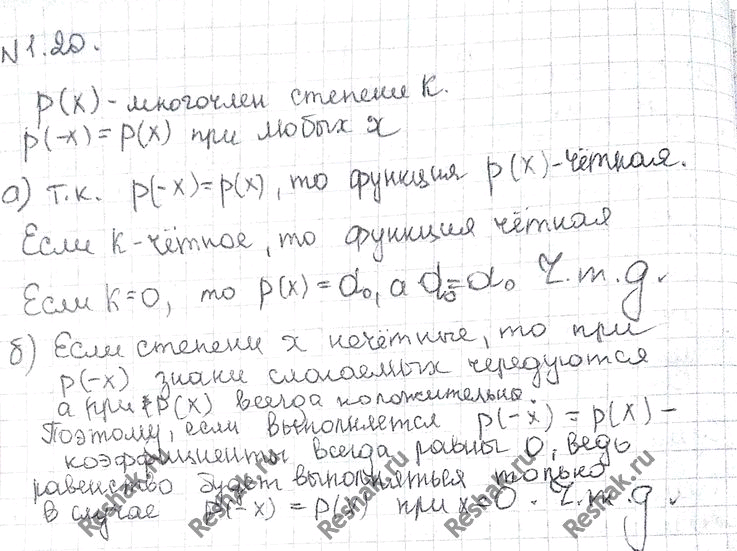 N 1.20.
p(x) - многочлен степени k.
p(-x) = p(x) при любых x
а) т.к. p(-x) = p(x), то функция p(x) - чётная.
Если k - чётное, то функция чётная
Если k = 0, то p(x) = α₀, а α₀ = α₀ Ч.т.д.
б) Если степени x нечётные, то при
p(-x) знаки слагаемых чередуются
а при p(x) всегда положительно.
Поэтому, если выполняется p(-x) = p(x) -
коэффициенты всегда равны 0, ведь
равенство будет выполняться только
в случае p(-x) = p(x) при x = 0. Ч.т.д.
Reshak.ru Reshak.ru Reshak.ru Reshak.ru Reshak.ru